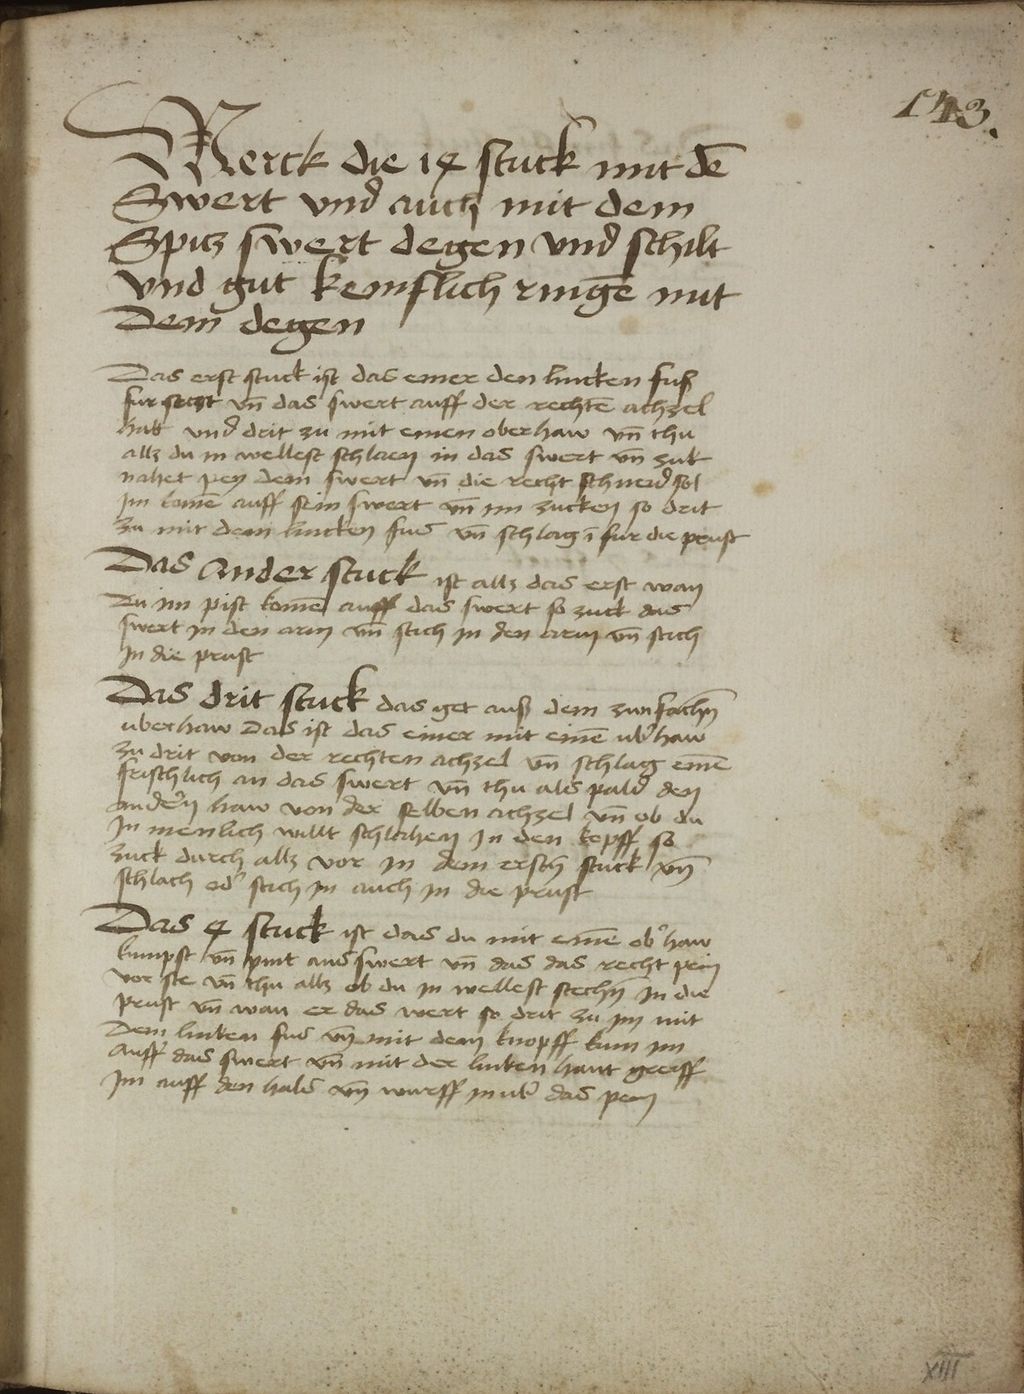 143.
Merck die 14 stuck mit dē
Swert vnd auch mit dem
Spitz swert degen vnd schilt
vnd gut kemflich ringē mit
Dem degen
Das erst stuck ist das einer den lincken fuß
fur setzt vn̄ das swert auff der rechtē achzel
hatt vnd drit zu mit einen oberhaw vn̄ thu
allz du in wellest schlaen in das swert vn̄ zuk
nahet pey dem swert vn̄ die recht schneid sol
im komē auff sein swert vn̄ im zucken so drit
zu mit dem lincken fus vn̄ schlag ī fur die prust
Das ander stuck ist allz das erst wan
Du im pist komē auff das swert so zuck das
swert in den arm vn̄ stich in den arm vn̄ stich
In die prust
Das drit stuck das get auß dem zwifachn̄
uberhaw Das ist das einer mit einē ub'haw
zu drit von der rechten achzel vn̄ schlag einē
frischlich an das swert vn̄ thu als pald den
andern haw von der selben achzel vn̄ ob du
In menlich willt schlahen In den kopff so
zuck durch allz vor in dem erstn̄ stuck vn̄
schlach od' stich in auch in die prust
Das 4 stuck ist das du mit einē ob'haw
kumpst vn̄ pint ans swert vn̄ das das recht pein
vor ste vn̄ thu allz ob du in wellest stechn̄ in die
prust vn̄ wan er das wert so drit zu im mit
Dem linken fus vn̄ mit dem knopff kum im
Auff das swert vn̄ mit der linken hant greiff
Im auff den hals vn̄ wurff in ub' das pein
XIIII